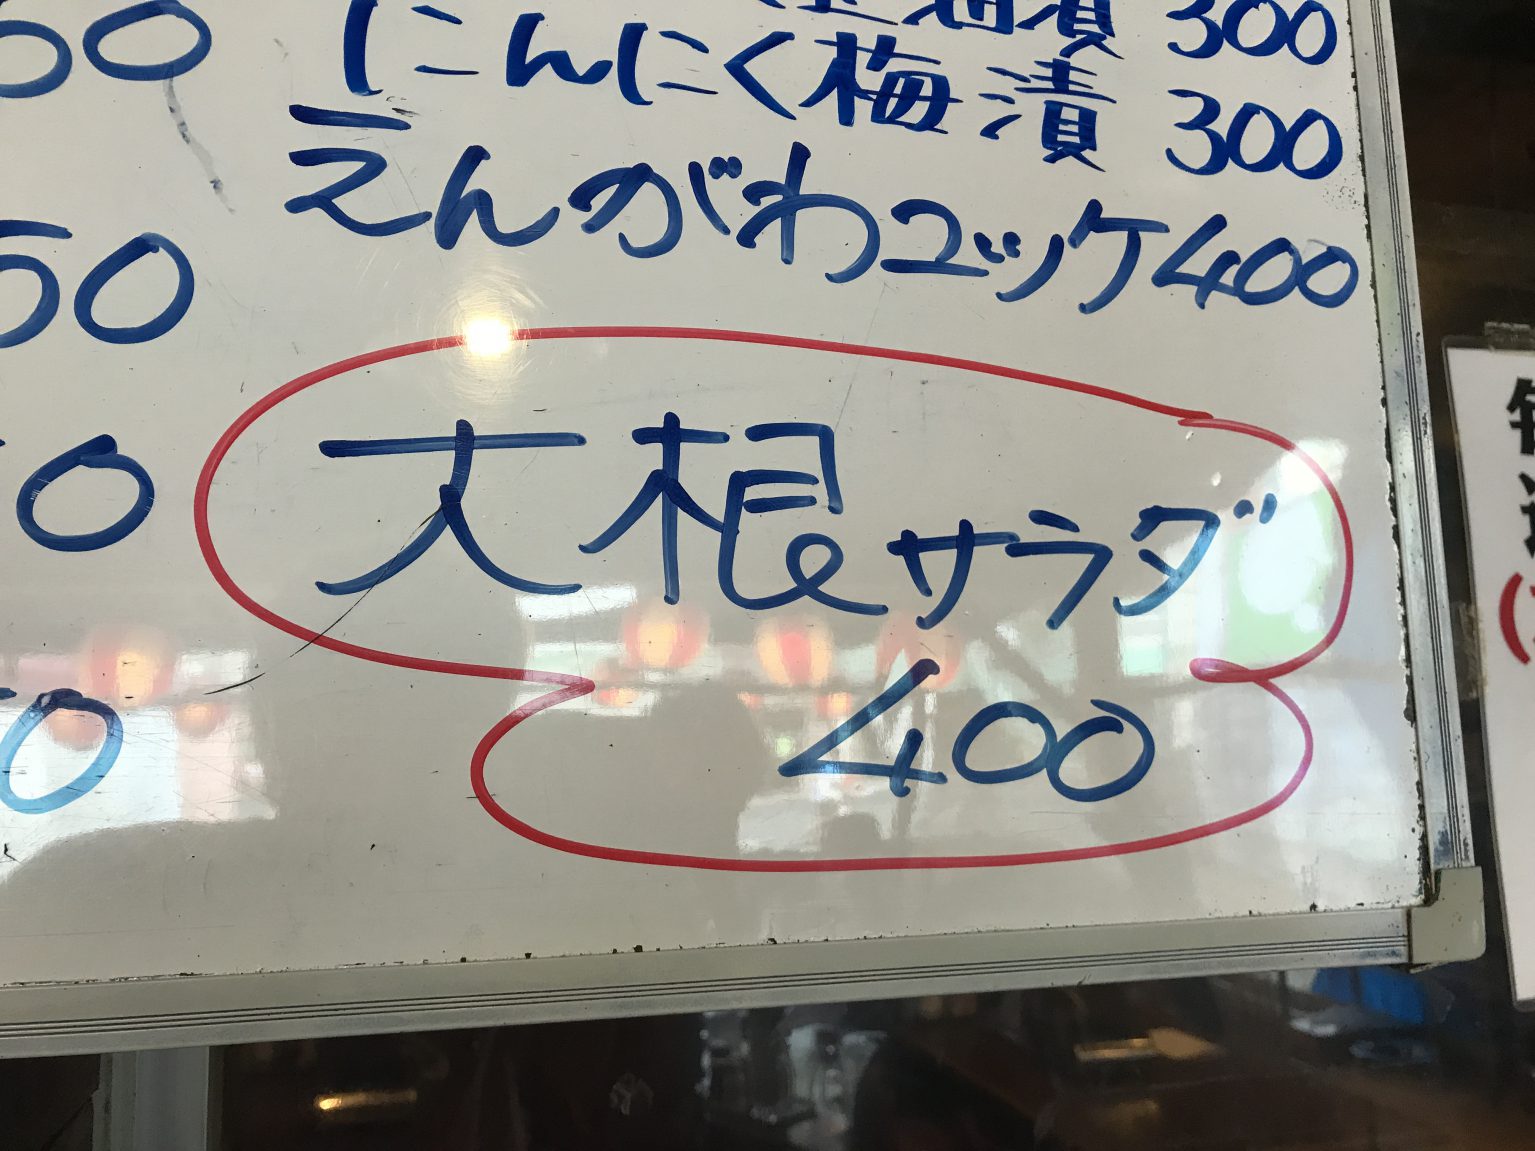 漬 300
にんにく梅漬 300
えんがわユッケ 400
大根サラダ
400